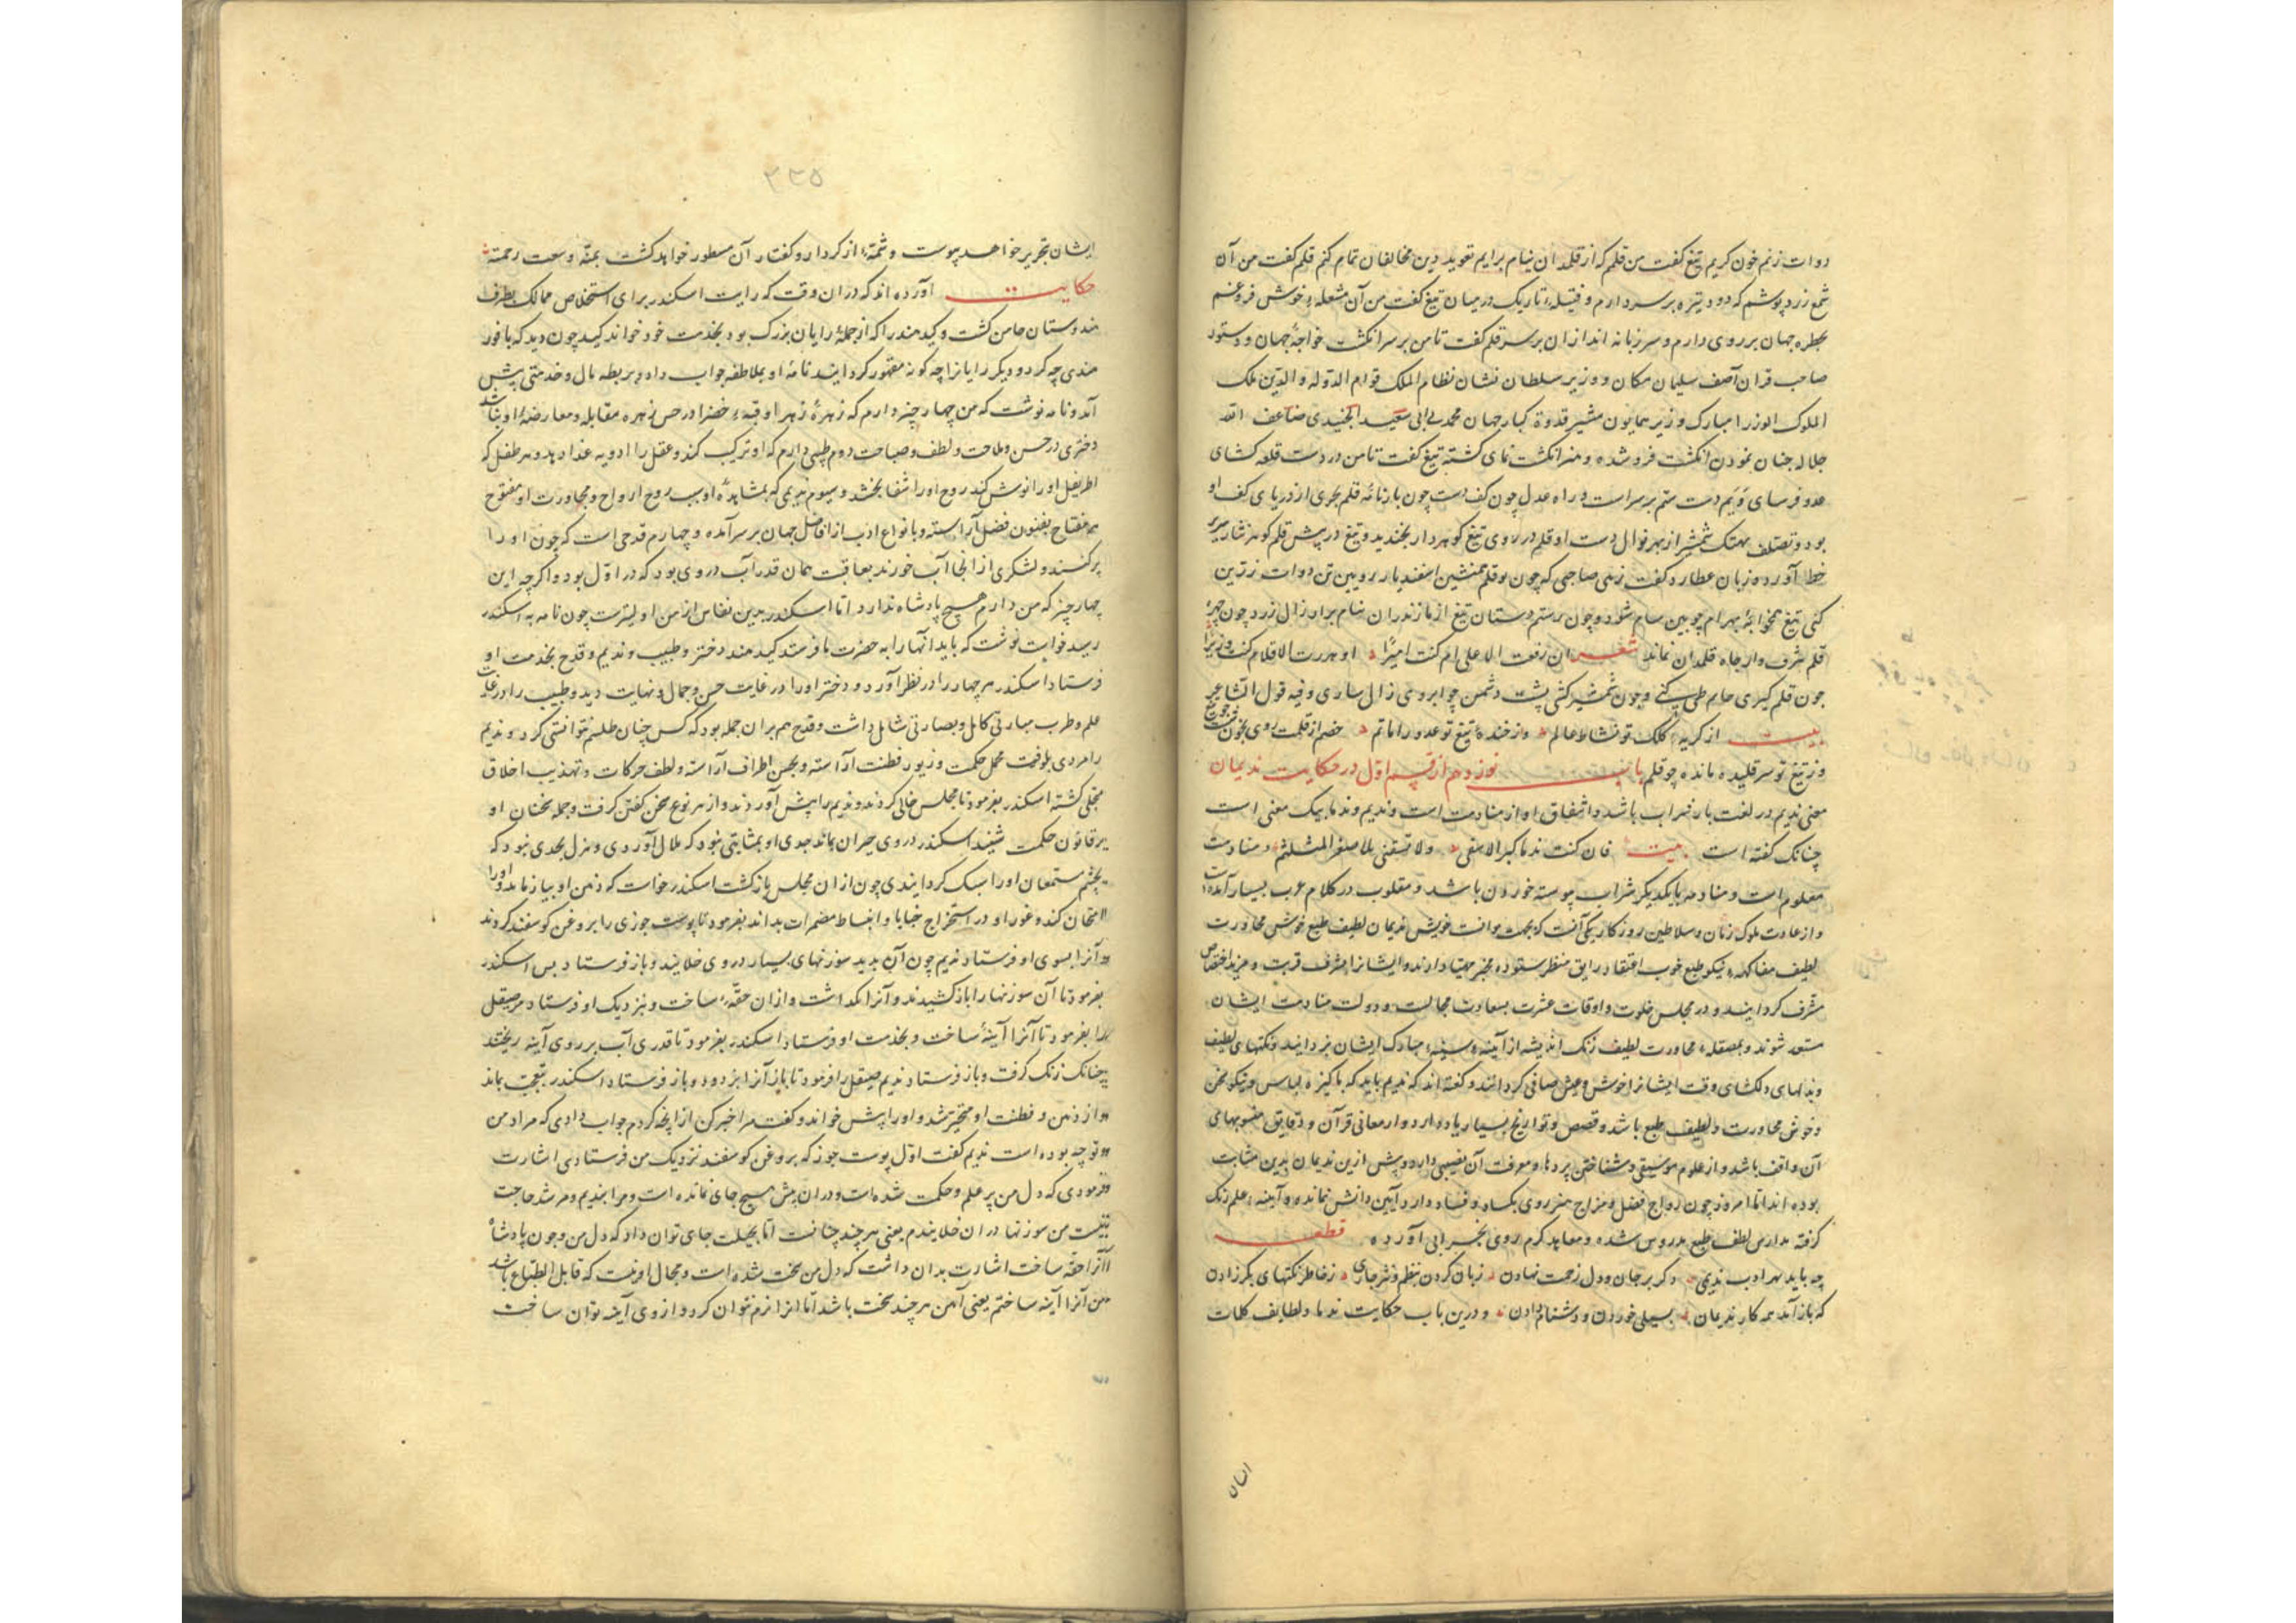 دوات زنم خون کریم تیغ کفت من قلمم که از قلمدان نیام برایم تعوید دین مخالفان تمام کنم قلم کفت من آن
شمع زرد پوشم که دود تیره بر سر دارم و فتیلهٔ تاریک در میان تیغ کفت من آن مشعلهٔ خوش فروغم
جهان بر روی دارم و سر زبانه اندازان بر سر قلم کفت تا من بر سر انکشت خواجهٔ جهان و دستور
صاحب قران آصف سلیمان مکان و وزیر سلطان نشان نظام الملک قوام الدوله والدین ملک
الملوک الوزرا مبارک وزیر همایون مشیر قدوة کبار جهان محمد بن ابی سعید الجنیدی ضاعف الله
جلاله چنان نمودن انکشت فرو شده و منم انکشت نمای کشته تیغ کفت تا من در دست قلعه کشای
عدو فرسای ویم دست ستم بر سر است و راه عدل چون کف دست چون بازنامهٔ قلم بحری از دریای کف او
بود و تصلف تیغ شمشیر از بهر نوال دست او قلم در روی تیغ کوهردار بخندید و تیغ در پیش قلم کوهر نثار سر بر
خط آورد و زبان عطارد کفت زهی صاحبی که چون بو قلم همنشین اسفندیار رویین تن دوات زرین
کنی تیغ همخوابهٔ بهرام چوبین سام شود و چون برستم دستان تیغ از مازندران نیام براری زال زرد چون چهرهٔ
قلم شرف وار جاه قلمدان نماند شعر ان رفعت الاعلی ام کنت امیرا او هررت الاقلام کنت وزیرا
چون قلم کیری حاتم طی کنی و چون شمشیر کشی پشت دشمن چو ابروی زال ساری و فیه قول الشاعر
بیت از کریهٔ کلک تو نشاط عالم وز خندهٔ تیغ تو عدو را ماتم خصم از قلمت روی بخون شست چو تیغ
وز تیغ تو سر قلیده مانده چو قلم باب نوزدهم از قسم اول در حکایت ندیمان
معنی ندیم در لغت یار شراب باشد و اشتقاق او از منادمت است و ندیم و ندمان بیک معنی است
چنانک کفته است بیت فان کنت ندمانی فبالاکبر اسقنی ولا تسقنی بالاصغر المتثلم و منادمت
معلوم است و منادمه با یکدیکر شراب پیوسته خوردن باشد و مقلوب در کلام عرب بسیار آمده است
و از عادت ملوک زمان و سلاطین روزکار یکی آنست که بجهت موانست خویش ندیمان لطیف طبع خوش محاورت
لطیف مفاکهه نیکو طبع خوب اعتقاد رایق منظر ستوده مخبر مهیا دارند و ایشانرا بشرف قربت و مزید اختصاص
مشرف کردانند و در مجلس خلوت و اوقات عشرت بسعادت مجالست و دولت منادمت ایشان
مستور شوند و بمصقلهٔ محاورت لطیف زنک اندیشه از آینهٔ سینهٔ مبارک ایشان بزدایند و نکتهای لطیف
و بذلهای دلکشای وقت ایشانرا خوش و عیش صافی کردانند و کفته اند که ندیم باید که پاکیزه لباس و نیکو سخن
و خوش محاورت و لطیف طبع باشد و قصص و تواریخ بسیار یاد دارد و از معانی قرآن و دقایق منسوبهای
آن واقف باشد و از علوم موسیقی و شناختن پردها و معرفت آن نصیبی دارد و پیش ازین ندیمان بدین مثابت
بوده اند اما امروز چون رواج فضل و مزاج هنر روی بکساد و فساد دارد آیین دانش نمانده و آینهٔ علم زنک
کرفته مدارس لطف طبع مدروس شده و معاهد کرم روی بخرابی آورده قطعه
چه باید بهر ادب ندیمی دکر بر جان و دل زحمت نهادن زبان کردن بنظم و نثر جاری ز خاطر نکتهای بکر زادن
که باز آمد همه کار ندیمان بسیلی خوردن و دشنام دادن و درین باب حکایت ندما و لطایف کلمات
ایشان
۲۲۵
ایشان بتحریر خواهد پیوست و شمهٔ از کردار و کفتار آن مسطور خواهد کشت بمنه و سعت رحمته
حکایت آورده اند که دران وقت که رایت اسکندر برای استخلاص ممالک بطرف
هندوستان ضامن کشت و کید هند را که از جملهٔ رایان بزرک بود بخدمت خود خواند کید چون دید که با فور
هندی چه کرد و دیکر رایانرا چه کونه مقهور کردانید نامهٔ او بملاطفه جواب داد و بربطه مال و خدمتی پیش
آمد و نامه نوشت که من چهار چیز دارم که زهرهٔ زهرا و قبهٔ خضرا در حسن زهره مقابله و معارضهٔ او نباشد
دختری در حسن و ملاحت و لطف و صباحت دوم طبیبی دارم که او ترکیب کند و عقل را ادویه غذا دهد و هر طفل که
اطریفل او را نوش کند روح او را شفا بخشد و سیوم ندیمی که بمشاهدهٔ او سبب روح ارواح و مجاورت او مفتوح
همه مفتاح بفنون فضل آراسته و بانواع ادب از افاضل جهان بر سر آمده و چهارم قدحی است که چون او را
پر کنند و لشکری از انجا آب خورند بعاقبت همان قدر آب در وی بود که در اول بود و اکرچه این
چهار چیز که من دارم هیچ پادشاه ندارد اما اسکندر بدین نفایس از من اولیترست چون نامه به اسکندر
رسید جواب نوشت که باید انهارا به حضرت ما فرستد کید هند دختر و طبیب و ندیم و قدح بخدمت او
فرستاد اسکندر هر چهار را در نظر آورد و دختر اورا در غایت حسن و جمال و نهایت دید و طبیب را در غایت
علم و طرب مهارتی کامل و بصارتی شامل داشت و قدح هم بران جمله بود که کس چنان طلسم نتوانستی کرد و ندیم
را مردی یافت محمل حکمت و زیور فطنت آراسته و بحسن اطراف آراسته و لطف حرکات و تهذیب اخلاق
متحلی کشته اسکندر بفرمود تا مجلس خالی کردند و ندیم را پیش آوردند و از هر نوع سخن کفتن کرفت و جمله سخنان او
بر قانون حکمت شنید اسکندر در وی حیران بماند جدی او بمثابتی نبود که ملال آوردی و هزل بحدی نبود که
بچشم مستمعان اورا سبک کردانیدی چون از ان مجلس بازکشت اسکندر خواست که ذهن او بیازماید و اورا
امتحان کند و غور او در استخراج خبایا و انبساط مضمرات بداند بفرمود تا پوست جوزی را بروغن کوسفند کردند
و آنرا بسوی او فرستاد ندیم چون آن بدید سوزنهای بسیار در وی خلانید و باز فرستاد پس اسکندر
بفرمود تا آن سوزنهارا باز کشیدند و آنرا بکداشت و ازان حقهٔ ساخت و نزدیک او فرستاد مر صیقل
را بفرمود تا آنرا آینهٔ ساخت و بخدمت او فرستاد اسکندر بفرمود تا قدری آب بر روی آینه ریختند
چنانک زنک کرفت و باز فرستاد ندیم صیقل را فرمود تا باز آنرا بزدود و باز فرستاد اسکندر بتعجب بماند
و از ذهن و فطنت او متحیر شد و اورا پیش خواند و کفت مرا خبر کن از انچه کردم جواب دادی که مراد من
و تو چه بوده است ندیم کفت اول پوست جوز که بروغن کوسفند نزدیک من فرستادی اشارت
فرمودی که دل من پر علم و حکمت شده است و دران بیش هیچ جای نمانده است و مرا بندیم و مرشد حاجت
نیست من سوزنها دران خلانیدم یعنی هر چند چنانست اما بحیلت جای توان داد که دل من و چون پادشاه
آنرا حقه ساخت اشارت بدان داشت که دل من سخت شده است و مجال او نیست که قابل انطباع باشد
من آنرا آینه ساختم یعنی آهن هر چند سخت باشد اما انرا نرم توان کرد و از وی آینه توان ساخت